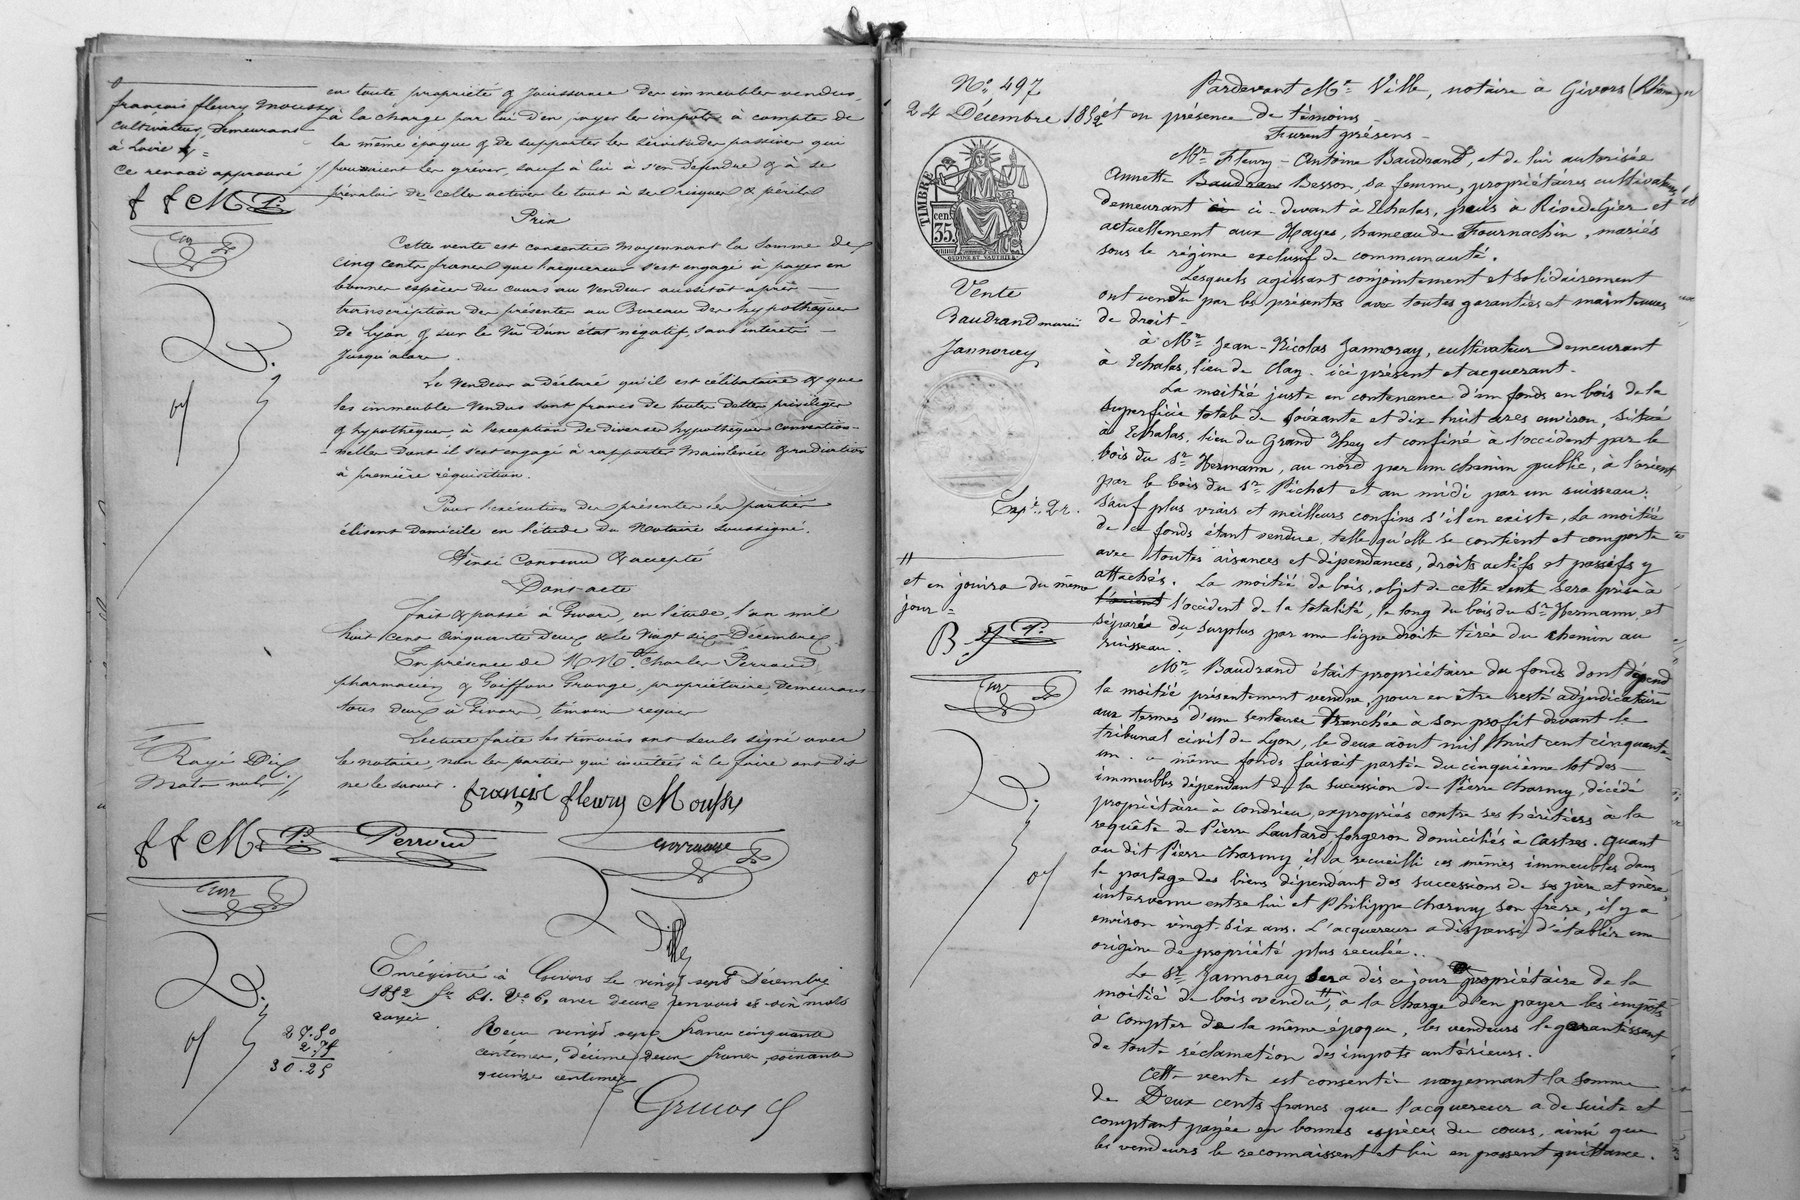 françois fleury moussy
cultivateur, demeurant
à Loire
ce renvoi approuvé
f f M P.
en toute propriété & jouissance des immeubles vendus,
à la charge par lui d'en payer les impôts à compter de
la même époque & de supporter les servitudes passives qui
pourraient les gréver, sauf à lui à s'en défendre & à se
prévaloir de celles actives le tout à ses risques & périls
Prix
Cette vente est consentie moyennant la somme de
cinq cents francs que l'acquereur s'est engagé à payer en
bonnes espèces du cours au vendeur aussitôt après
transcription des présentes au Bureau des hypothèques
de Lyon & sur le vu d'un état négatif, sans intérêts
jusqu'alors.
Le vendeur a déclaré qu'il est célibataire & que
les immeubles vendus sont francs de toutes dettes privilèges
& hypothèques, à l'exception de diverses hypothèques convention-
nelles dont il s'est engagé à rapporter mainlevée & radiation
à première réquisition.
Pour l'exécution des présentes les parties
élisent domicile en l'étude du Notaire soussigné.
Ainsi convenu & accepté
Dont acte
fait & passé à Givors, en l'étude, l'an mil
huit cent cinquante deux & le vingt six Décembre
En présence de MM. Charles Perroud,
pharmacien & Goiffon Grange, propriétaire, demeurans
tous deux à Givors, témoins requis
Lecture faite les témoins ont seuls signé avec
le notaire, non les parties qui invitées à le faire ont dit
ne le savoir.
Rayé Dix
Mots nuls
françois fleury Moussy
f f M P. Perroud
Ville
Enrégistré à Givors le vingt sept Décembre
1852 fo 61. Vo 6, avec deux renvois et dix mots
rayés
Reçu vingt sept francs cinquante
centimes, décime deux francs soixante
quinze centimes
27.50
2.75
30.25
No 497
24 Décembre 1852
TIMBRE
cen.
35.
OUDINE ET VAUTHIER
Vente
Baudrand mariés
Jannoray
Expé. 2 r.
et en jouira du même
jour =
B. J P.
Pardevant Me Ville, notaire à Givors (Rhône)
et en présence de témoins
Furent présens
Mr Fleury-Antoine Baudrand, et de lui autorisée
Annette Baudran Besson, sa femme, propriétaires cultivateurs
demeurant ci ci-devant à Echalas, puis à Rivedegier et
actuellement aux Hayes, hameau de Fournachin, mariés
sous le régime exclusif de communauté.
Lesquels agissant conjointement et solidairement
ont vendu par les présentes avec toutes garanties et maintenues
de droit
à Mr Jean-Nicolas Jannoray, cultivateur demeurant
à Echalas, lieu de Clay. ici présent et acquerant.
La moitié juste en contenance d'un fonds en bois de la
superficie totale de soixante et dix huit ares environ, situé
à Echalas, lieu du Grand They et confiné à l'occident par le
bois du Sr Hermann, au nord par un chemin public, à l'orient
par le bois du Sr Pichot et au midi par un ruisseau.
Sauf plus vrais et meilleurs confins s'il en existe. La moitié
de ce fonds étant vendue telle qu'elle se contient et comporte
avec toutes aisances et dépendances, droits actifs et passifs y
attachés. La moitié de bois, objet de cette vente sera prise à
l'orient l'occident de la totalité, le long du bois du Sr Hermann, et
séparée du surplus par une ligne droite tirée du chemin au
ruisseau.
Mr Baudrand était propriétaire du fonds dont dépend
la moitié présentement vendue, pour en être resté adjudicataire
aux termes d'une sentence tranchée à son profit devant le
tribunal civil de Lyon, le deux août mil huit cent cinquante-
un. Ce même fonds faisait partie du cinquième lot des
immeubles dépendant de la succession de Pierre Charmy, décédé
propriétaire à Condrieu, expropriés contre ses héritiers à la
requête de Pierre Lautard forgeron domicilié à Castres. Quant
au dit Pierre Charmy il a recueilli ces mêmes immeubles dans
le partage des biens dépendant des successions de ses père et mère,
intervenu entre lui et Philippe Charmy son frère, il y a
environ vingt-six ans. L'acquereur a dispensé d'établir une
origine de propriété plus reculée..
Le Sr Jannoray sera dès ce jour propriétaire de la
moitié de bois vendu, à la charge d'en payer les impôts
à compter de la même époque, les vendeurs le garantissant
de toute réclamation des impots antérieurs.
Cette vente est consentie moyennant la somme
de Deux cents francs que l'acquereur a de suite et
comptant payée en bonnes espèces du cours, ainsi que
les vendeurs le reconnaissent et lui en passent quittance.